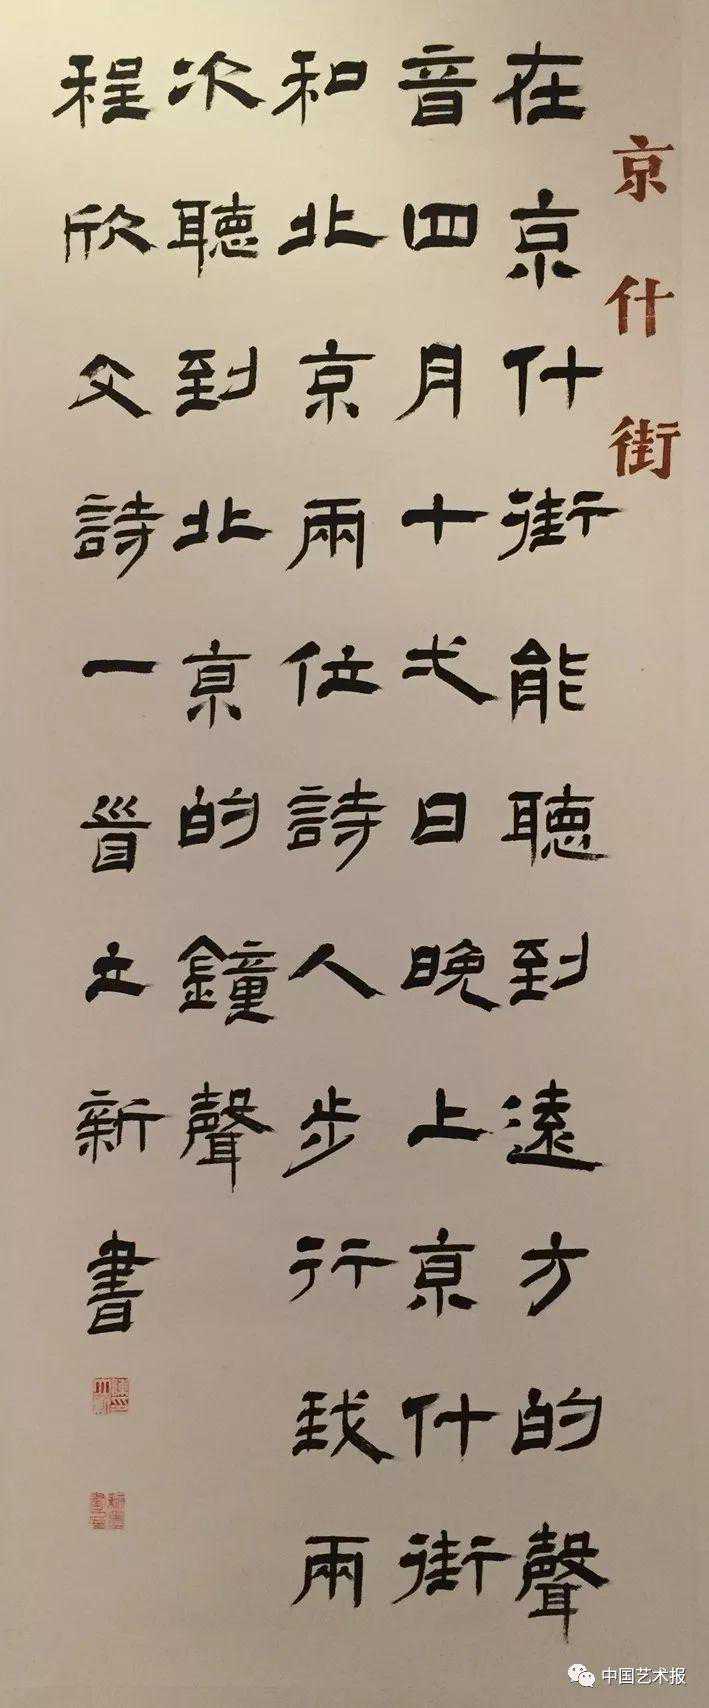 京什街
在京什街能聽到遠方的聲
音四月十弍日晚上京什街
和北京兩位詩人步行我兩
次聽到北京的鐘聲
程欣文詩一首新書
中国艺术报